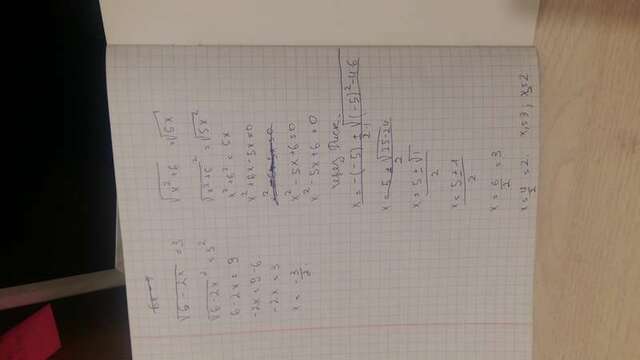 √6-2x = 3
√6-2x² = 3²
6-2x = 9
-2x = 9-6
-2x = 3
x = -3/2
√x²+6 = √5x
√x²+6² = √5x²
x²+6² = 5x
x²+6x-5x=0
x²-5x+6=0
x²-5x+6=0
через Диск.
x = -(-5) ± √(-5)²-4·6 / 2·1
x = 5 ± √25-24 / 2
x = 5 ± √1 / 2
x = 5 ± 1 / 2
x = 6/2 = 3
x = 4/2 = 2 x₁=3; x₂=2